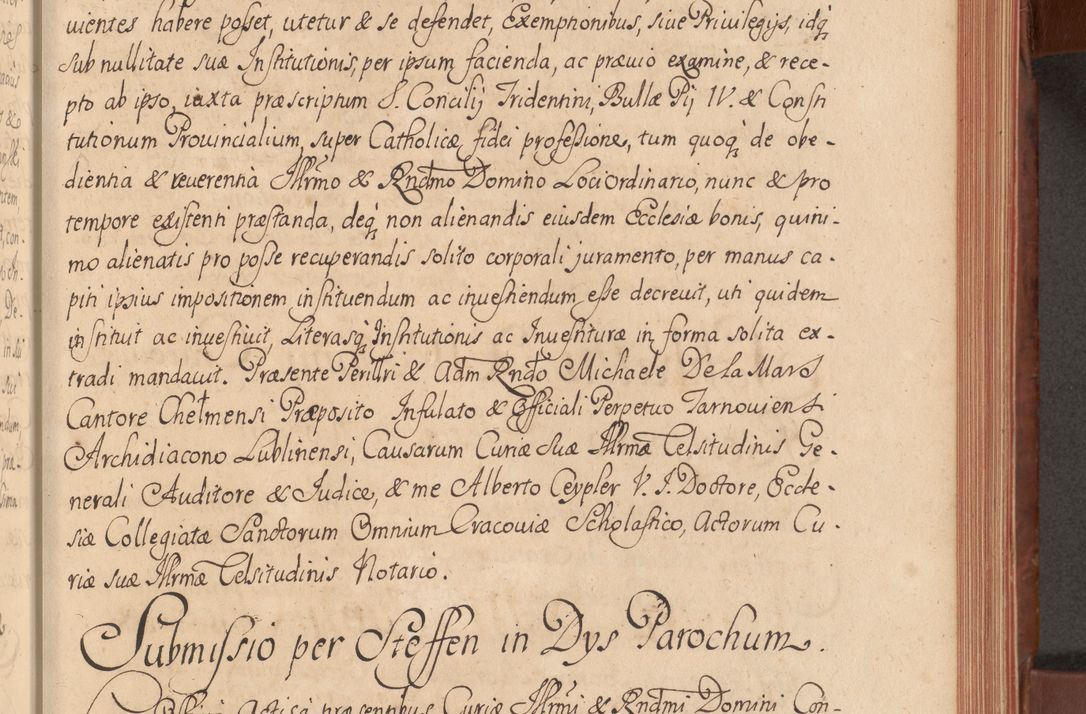 uientes habere posset, utetur & se defendet, Exemptionibus, siue Privilegijs, idq́
sub nullitate suæ Institutionis, per ipsum facienda, ac præuio examine, & rece-
pto ab ipso, iuxta præscriptum S. Concilij Tridentini, Bullæ Pij IV. & Consti
tutionum Prouincialium, super Catholicæ fidei professione, tum quoq́ de obe-
dientia & reuerentia Illrmo & Rndmo Domino Loci Ordinario, nunc & pro
tempore existenti præstanda, deq́ non alienandis eiusdem Ecclesiæ bonis, quini-
mo alienatis pro posse recuperandis solito corporali juramento, per manus ca-
piti ipsius impositionem instituendum ac inuestiendum esse decreuit, uti quidem
instituit ac inuestiuit, Literasq́ Institutionis ac Inuestituræ in forma solita ex-
tradi mandauit. Præsente Perillri & Adm Rndo Michaele De la Mars
Cantore Chełmensi Præposito Infulato & Officiali Perpetuo Tarnouiensi
Archidiacono Lublinensi, Causarum Curiæ suæ Illrmæ Celsitudinis Ge-
nerali Auditore & Judice, & me Alberto Ceypler V. J. Doctore, Eccle-
siæ Collegiatæ Sanctorum Omnium Cracouiæ Scholastico, Actorum Cu-
riæ suæ Illrmæ Celsitudinis Notario.
Submissio per Steffen in Dys Parochum.
Actisq́ præsentibus Curiæ Illrmi & Rndmi Domini Con-